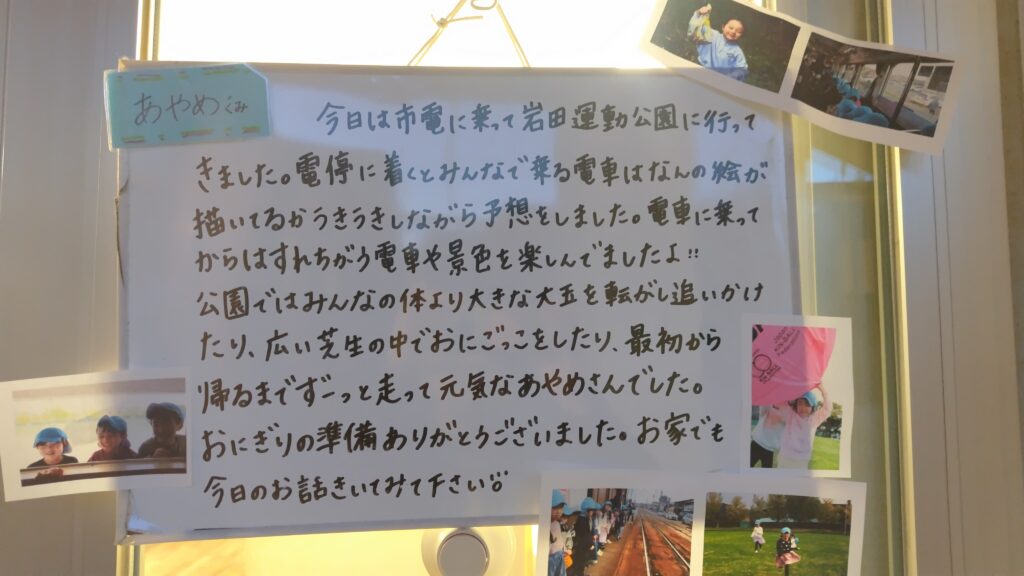 あやめぐみ
今日は市電に乗って岩田運動公園に行って
きました。電停に着くとみんなで乗る電車はなんの絵が
描いてるかうきうきしながら予想をしました。電車に乗って
からはすれちがう電車や景色を楽しんでましたよ!!
公園ではみんなの体より大きな大玉を転がし追いかけ
たり、広い芝生の中でおにごっこをしたり、最初から
帰るまでずーっと走って元気なあやめさんでした。
おにぎりの準備ありがとうございました。お家でも
今日のお話きいてみて下さい